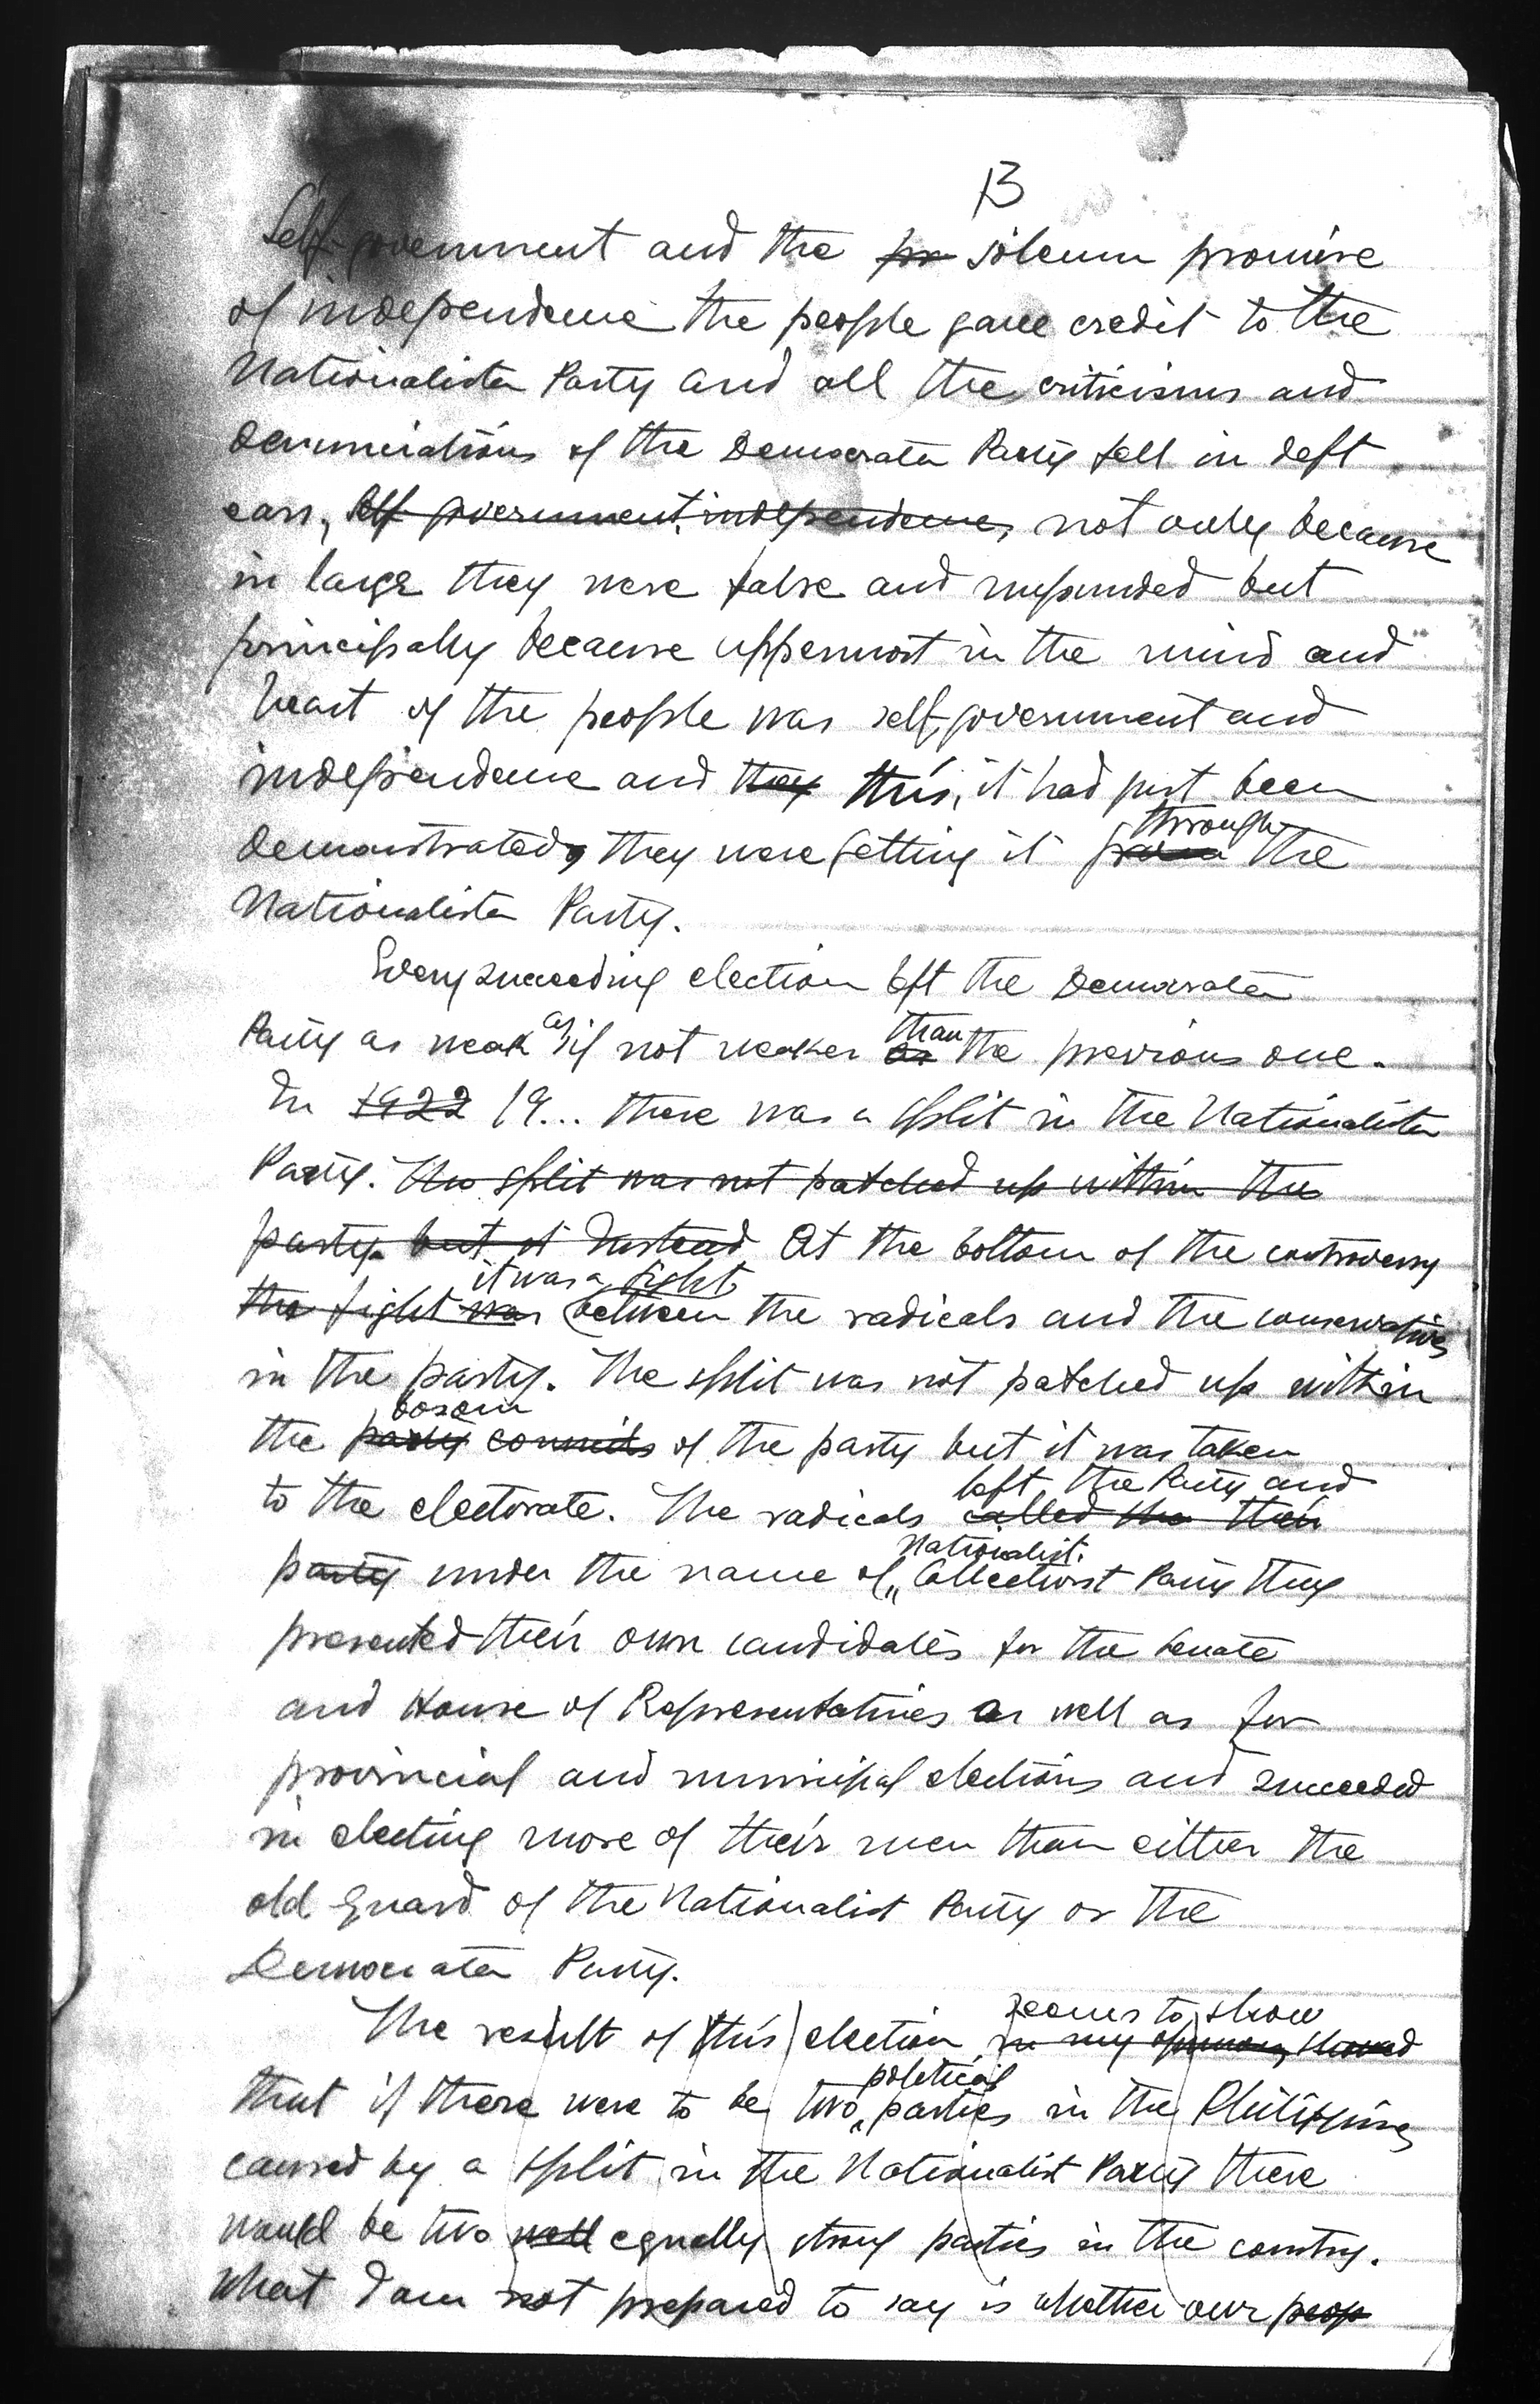 13
Self-government and the pr solemn promise
of independence the people gave credit to the
Nationalista Party and all the criticisms and
denunciations of the Democrata Party fell in deft
ears, self government, independence, not only because
in large they were false and unfounded but
principally because uppermost in the mind and
heart of the people was self-government and
independence and they this, it had just been
demonstrated, they were getting it from through the
Nationalista Party.
Every succeeding election left the Democrata
Party as weak as if not weaker as than the previous one.
In 1922 19... there was a split in the Nationalista
Party. The split was not patched up within the
party. but it Instead At the bottom of the controversy
the fight was it was a fight between the radicals and the conservatives
in the party. The split was not patched up within
the party councils bosom of the party but it was taken
to the electorate. The radicals called the their left the Party and
party under the name of Nationalist Collectivist Party they
presented their own candidates for the Senate
and House of Representatives as well as for
provincial and municipal elections and succeeded
in electing more of their men than either the
old guard of the Nationalist Party or the
Democrata Party.
The result of this election in my opinion, showed seems to show
that if there were to be two political parties in the Philippines
caused by a split in the Nationalist Party there
would be two well equally strong parties in the country.
What I am not prepared to say is whether our peop